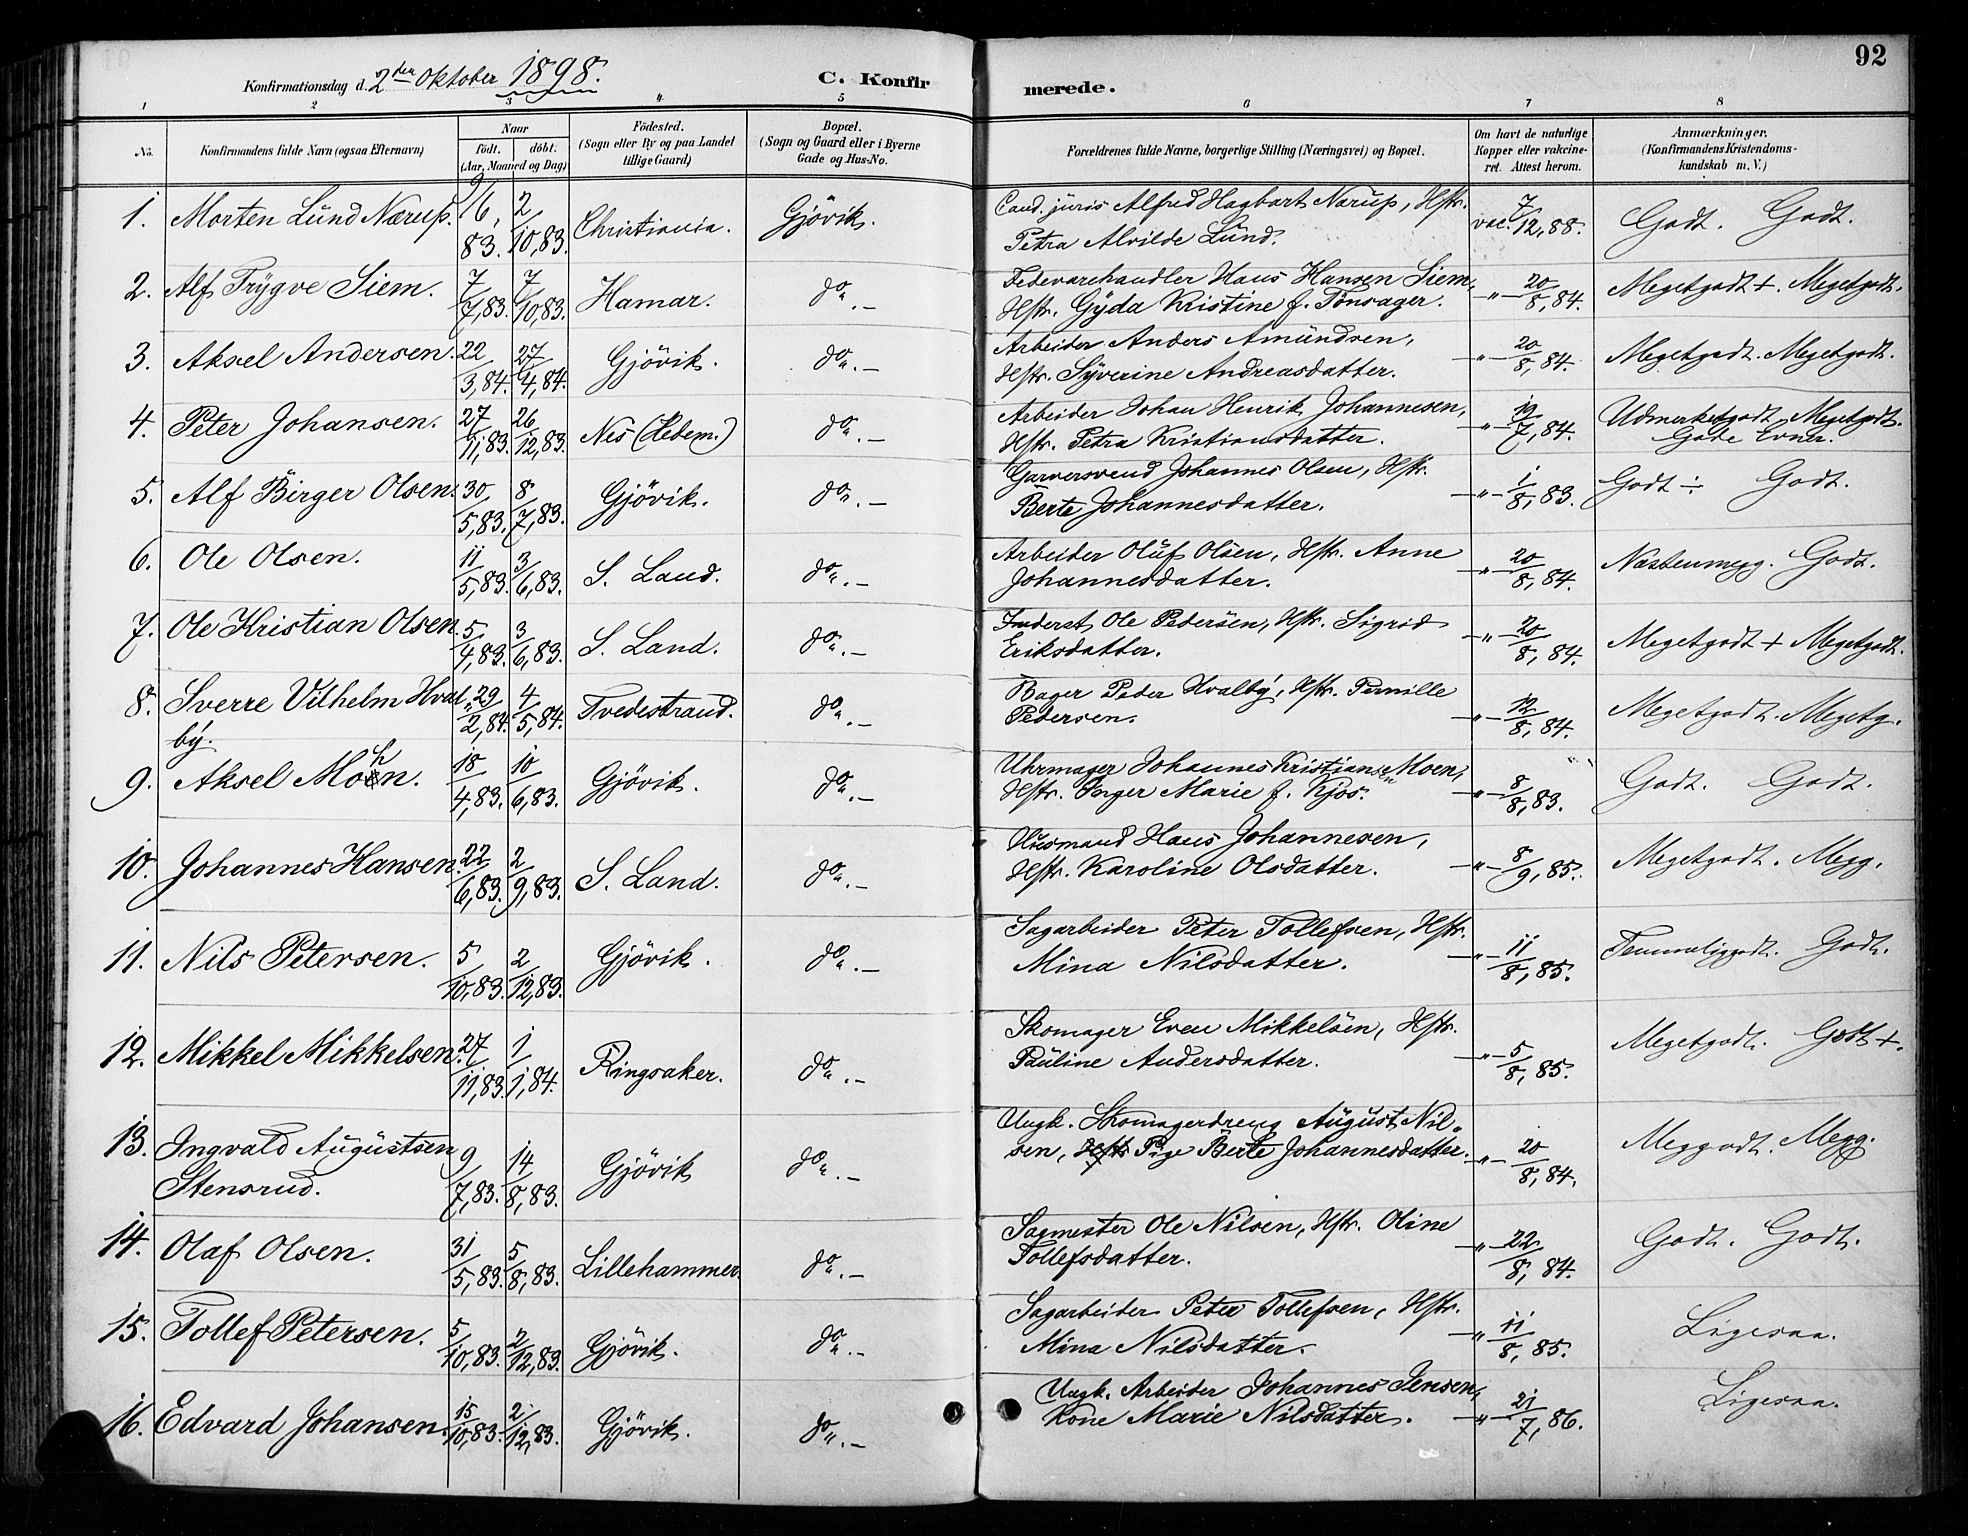 92
Konfirmationsdag d. 2den Oktober 1898. C. Konfirmerede.
1 2 3 4 5 6 7 8
No. Konfirmandens fulde Navn (ogsaa Efternavn) Naar født. døbt. (Aar, Maaned og Dag) Födested. (Sogn eller By og paa Landet tillige Gaard) Bopæl. (Sogn og Gaard eller i Byerne Gade og Hus-No. Forældrenes fulde Navne, borgerlige Stilling (Næringsvei) og Bopæl. Om havt de naturlige Kopper eller vaccineret. Attest herom. Anmærkninger. (Konfirmandens Kristendomskundskab m. V.)
1. Morten Lünd Nærup. 16/9, 83. 2/10,83. Christiania. Gjövik. Cand. juris Alfred Hagbart Närup, Hstr. Petra Alvilde Lünd. vac. 7/12,88. Godt. Godt.
2. Alf Trÿgve Siem. 7/7,83. 7/10,83. Hamar. do.- Fedevarehandler Hans Hansen Siem, Hstr. Gÿda Kristine f. Tönsager. -"- 20/8,84. Megetgodt +. Megetgodt.
3. Aksel Andersen. 22/3,84. 27/4,84. Gjövik. do.- Arbeider Anders Amündsen, Hstr. Sÿverine Andreasdatter. -"- 20/8,84. Megetgodt. Megetgodt.
4. Peter Johansen. 27/11,83. 26/12,83. Nes (Hedem.) do.- Arbeider Johan Henrik Johannesen, Hstr. Petra Kristiansdatter. -"- 19/7,84. Udmerketgodt. Megetgodt. Gode Evner.
5. Alf Birger Olsen. 30/5,83. 8/7,83. Gjövik. do.- Garversvend Johannes Olsen, Hstr. Berte Johannesdatter. -"- 1/8,83. Godt ÷ Godt.
6. Ole Olsen. 11/5,83. 3/6,83. S. Land. do.- Arbeider Olüf Olsen, Hstr. Anne Johannesdatter. -"- 20/8,84. Næstenmegg. Godt.
7. Ole Kristian Olsen. 5/4,83. 3/6,83. S. Land. do.- Inderst Ole Pedersen, Hstr. Sigrid Eriksdatter. -"- 20/8,84. Megetgodt + Megetgodt.
8. Sverre Vilhelm Hvalbÿ. 29/2,84. 4/5,84. Tvedestrand. do.- Bager Peder Hvalbÿ, Hstr. Pernille Pedersen. -"- 12/8,84. Megetgodt. Megetg.
9. Aksel Mohn. 18/4,83. 10/6,83. Gjövik. do.- Uhrmager Johannes Kristiansen Moen, Hstr. Inger Marie f. Kjos. -"- 8/8,83. Godt. Godt.
10. Johannes Hansen. 22/6,83. 2/9,83. S. Land. do.- Husmand Hans Johannesen, Hstr. Karoline Olsdatter. -"- 8/9,85. Megetgodt. Megg.
11. Nils Petersen. 5/10,83. 2/12,83. Gjövik. do.- Sagarbeider Peter Tollefsen, Hstr. Mina Nilsdatter. -"- 11/8,85. Temmeliggodt. Godt.
12. Mikkel Mikkelsen. 27/11,83. 1/1,84. Ringsaker. do.- Skomager Even Mikkelsen, Hstr. Paüline Andersdatter. -"- 5/8,85. Megetgodt. Godt +.
13. Ingvald Augüstsen Stensrud. 9/7,83. 14/8,83. Gjövik do.- Ungk. Skomagerdreng Aügüst Nilsen, Hstr Pige Berte Johannesdatter. -"- 20/8,84. Meggodt. Megg.
14. Olaf Olsen. 31/5,83. 5/8,83. Lillehammer. do.- Sagmester Ole Nilsen, Hstr. Oline Tollefsdatter. -"- 22/8,84. Godt. Godt.
15. Tollef Petersen. 5/10,83. 2/12,83. Gjövik. do.- Sagarbeider Peter Tollefsen, Hstr. Mina Nilsdatter. -"- 11/8,85. Ligesaa.
16. Edvard Johansen. 15/10,83. 2/12,83. Gjövik. do.- Ungk. Arbeider Johannes Jensen, Kone Marie Nilsdatter. -"- 21/7,86. Ligesaa.